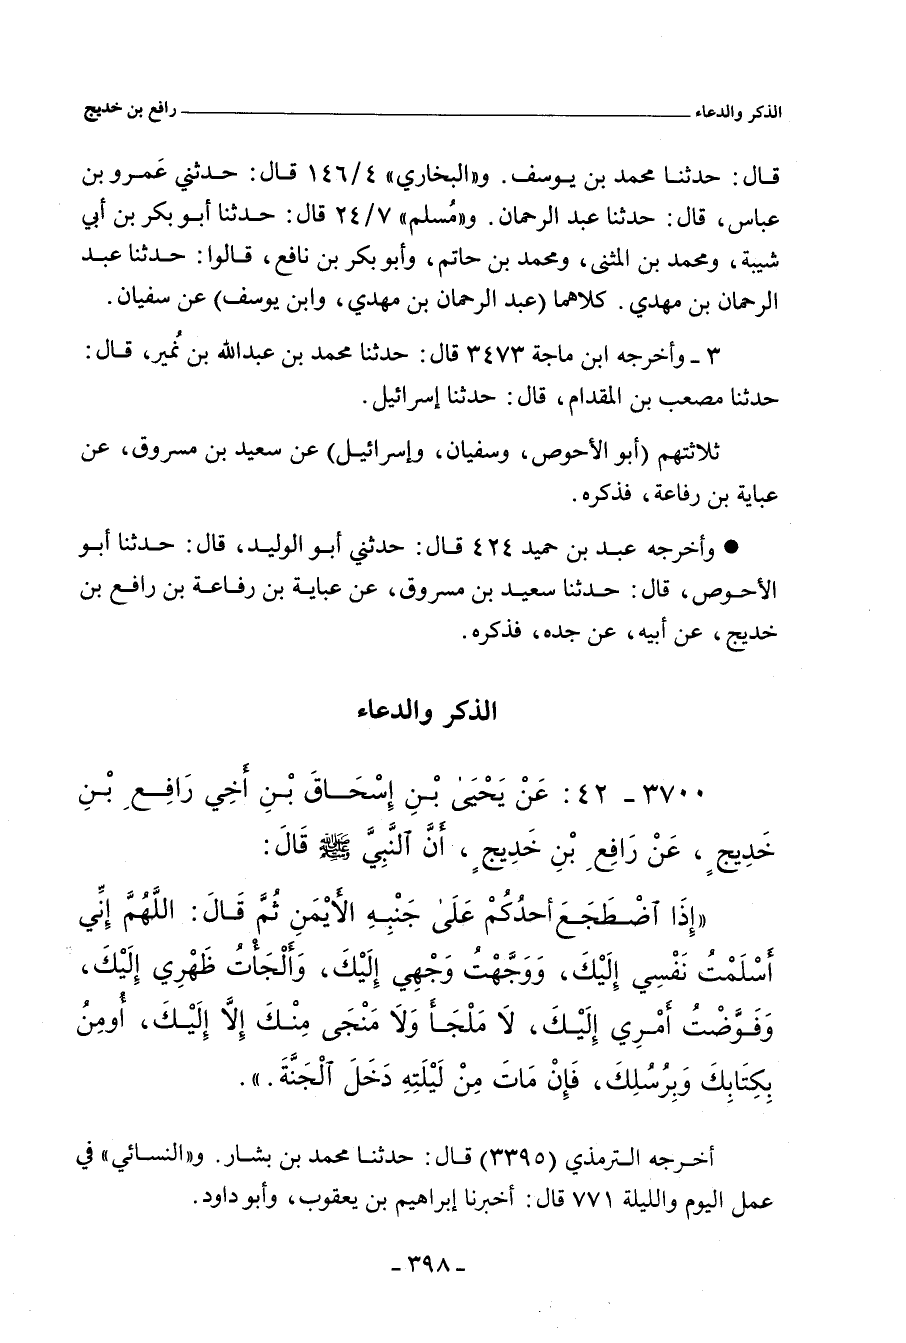 الذكر والدعاء ــــــــــــــــ رافع بن خديج
قال: حدثنا محمد بن يوسف. و«البخاري» ١٤٦/٤ قال: حدثني عَمرو بن
عباس، قال: حدثنا عبد الرحمان. و«مُسلم» ٢٤/٧ قال: حدثنا أبو بكر بن أبي
شيبة، ومحمد بن المثنى، ومحمد بن حاتم، وأبو بكر بن نافع، قالوا: حدثنا عبد
الرحمان بن مهدي. كلاهما (عبد الرحمان بن مهدي، وابن يوسف) عن سفيان.
٣ ـ وأخرجه ابن ماجة ٣٤٧٣ قال: حدثنا محمد بن عبدالله بن نُمير، قال:
حدثنا مصعب بن المقدام، قال: حدثنا إسرائيل.
ثلاثتهم (أبو الأحوص، وسفيان، وإسرائيل) عن سعيد بن مسروق، عن
عباية بن رفاعة، فذكره.
● وأخرجه عبد بن حميد ٤٢٤ قال: حدثني أبو الوليد، قال: حدثنا أبو
الأحوص، قال: حدثنا سعيد بن مسروق، عن عباية بن رفاعة بن رافع بن
خديج، عن أبيه، عن جده، فذكره.
الذكر والدعاء
٣٧٠٠ ـ ٤٢: عَنْ يَحْيَىٰ بْنِ إِسْحَاقَ بْنِ أَخِي رَافِعِ بْنِ
خَدِيجٍ، عَنْ رَافِعِ بْنِ خَدِيجٍ، أَنَّ ٱلنَّبِيَّ ﷺ قَالَ:
«إِذَا ٱضْطَجَعَ أَحدُكُمْ عَلَىٰ جَنْبِهِ الأَيْمَنِ ثُمَّ قَالَ: اللَّهُمَّ إِنِّي
أَسْلَمْتُ نَفْسِي إِلَيْكَ، وَوَجَّهْتُ وَجْهِي إِلَيْكَ، وَأَلْجَأْتُ ظَهْرِي إِلَيْكَ،
وَفَوَّضْتُ أَمْرِي إِلَيْكَ، لَا مَلْجَأَ وَلَا مَنْجَى مِنْكَ إِلَّا إِلَيْكَ، أُومِنُ
بِكِتَابِكَ وَبِرُسُلِكَ، فَإِنْ مَاتَ مِنْ لَيْلَتِهِ دَخَلَ ٱلْجَنَّةَ.».
أخرجه الترمذي (٣٣٩٥) قال: حدثنا محمد بن بشار. و«النسائي» في
عمل اليوم والليلة ٧٧١ قال: أخبرنا إبراهيم بن يعقوب، وأبو داود.
ـ ٣٩٨ ـ